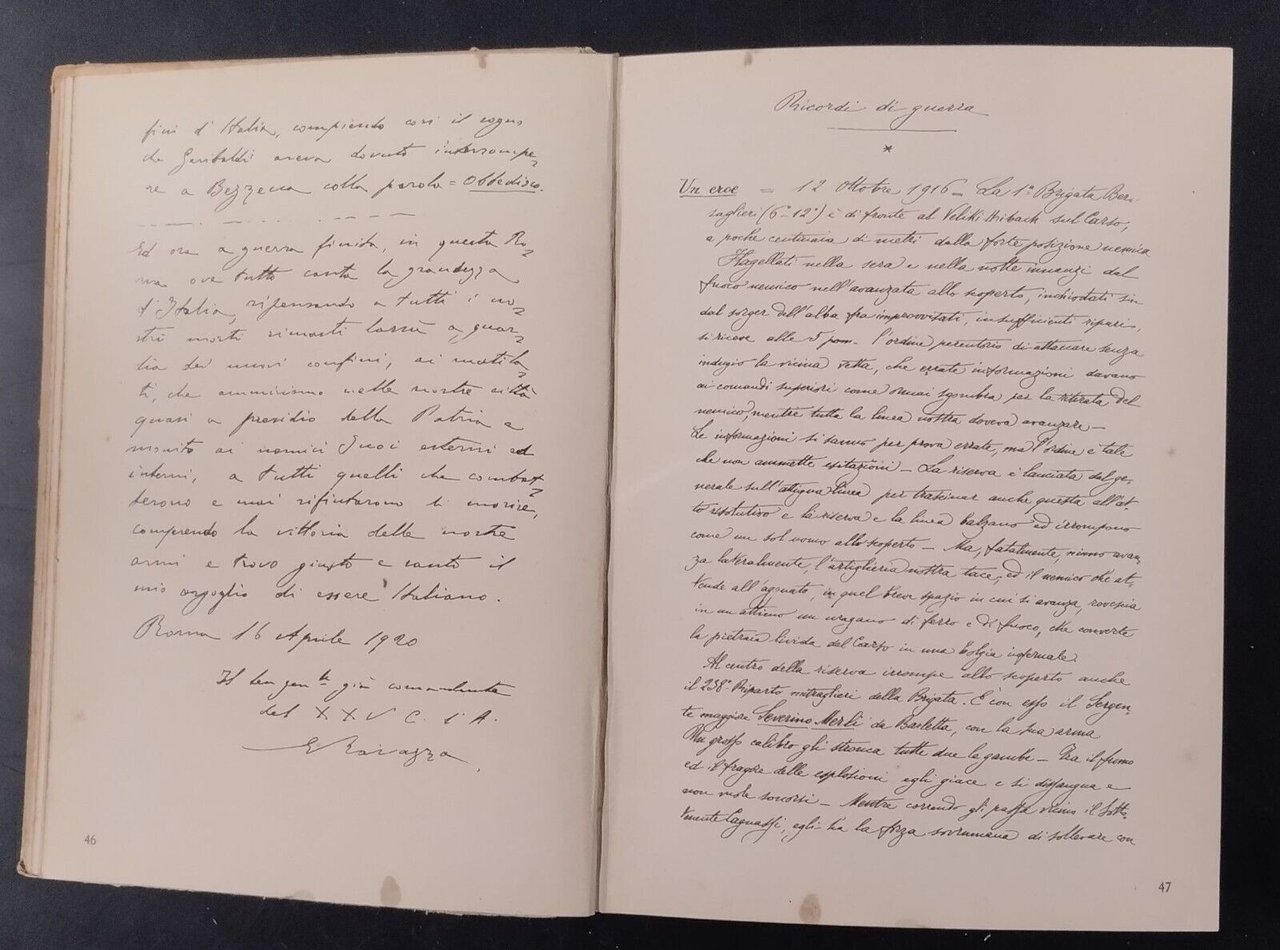 fini d'Italia, compiendo così il sogno
che Garibaldi aveva dovuto interrompe=
re a Bezzecca colla parola = Obbedisco.
Ed ora a guerra finita, in questa Ro=
ma ove tutto canta la grandezza
d'Italia, ripensando a tutti i no=
stri morti rimasti lassù a guar=
dia dei nuovi confini, ai mutila=
ti, che ammiriamo nelle nostre città
quasi a presidio della Patria e
monito ai nemici suoi esterni ed
interni, a tutti quelli che combat=
terono e mai rifiutarono di morire,
comprendo la vittoria delle nostre
armi e trovo giusto e santo il
mio orgoglio di essere Italiano.
Roma 16 Aprile 1920
Il ten gen.le già comandante
del XXV C. d'A.
E Ravazza
46
Ricordi di guerra
*
Un eroe = 12 Ottobre 1916 _ La 1ª Brigata Ber=
saglieri (6-12°) è di fronte al Veliki Hribach sul Carso,
a poche centinaia di metri dalla forte posizione nemica
Flagellati nella sera e nella notte innanzi dal
fuoco nemico nell'avanzata allo scoperto, inchiodati sin
dal sorger dell'alba fra improvvisati, insufficienti ripari,
si riceve alle 5 pom. l'ordine perentorio di attaccare senza
indugio la vicina vetta, che errate informazioni davano
ai comandi superiori come omai sgombra per la ritirata del
nemico, mentre tutta la linea nostra doveva avanzare _
Le informazioni si sanno per prova errate, ma l'ordine è tale
che non ammette esitazioni _ La riserva è lanciata dal ge=
nerale sull'attigua linea per trascinar anche questa all'at=
to risolutivo e la riserva e la linea balzano ed irrompono
come un sol uomo allo scoperto _ Ma, fatalmente, niuno avan=
za lateralmente, l'artiglieria nostra tace, ed il nemico che at=
tende all'agguato, in quel breve spazio in cui si avanza, rovescia
in un attimo un uragano di ferro e di fuoco, che converte
la pietraia livida del Carso in una bolgia infernale.
Al centro della riserva irrompe allo scoperto anche
il 238° Riparto mitraglieri della Brigata. È con esso il Sergen=
te maggiore Severino Merli da Barletta, con la sua arma
Un grosso calibro gli stronca tutte due le gambe _ Fra il fumo
ed il fragore delle esplosioni egli giace e si dissangua e
non vuole soccorsi _ Mentre correndo gli passa vicino il Sotto=
tenente Cagnassi, egli ha la forza sovrumana di sollevare con
47